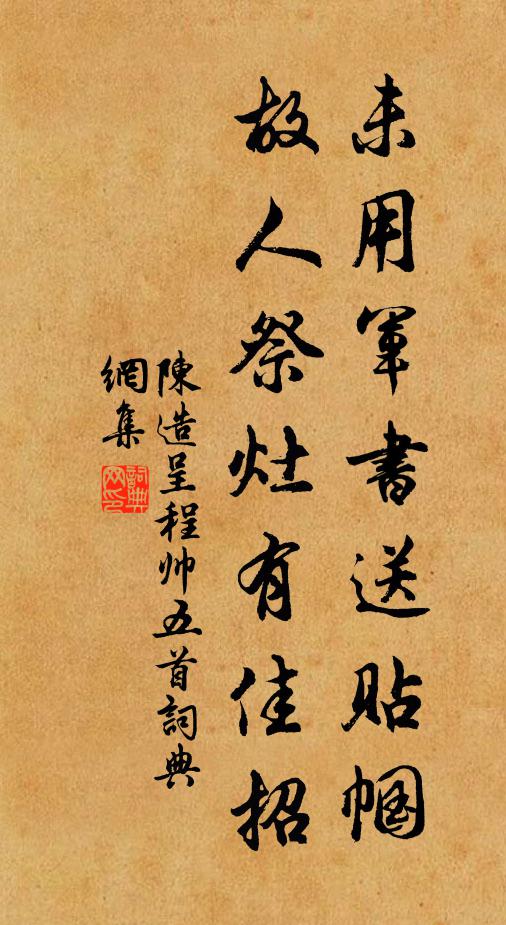 未用軍書送貼帼
故人祭灶有佳招
陳造呈程帅五首詞典
網集
詞典
网印